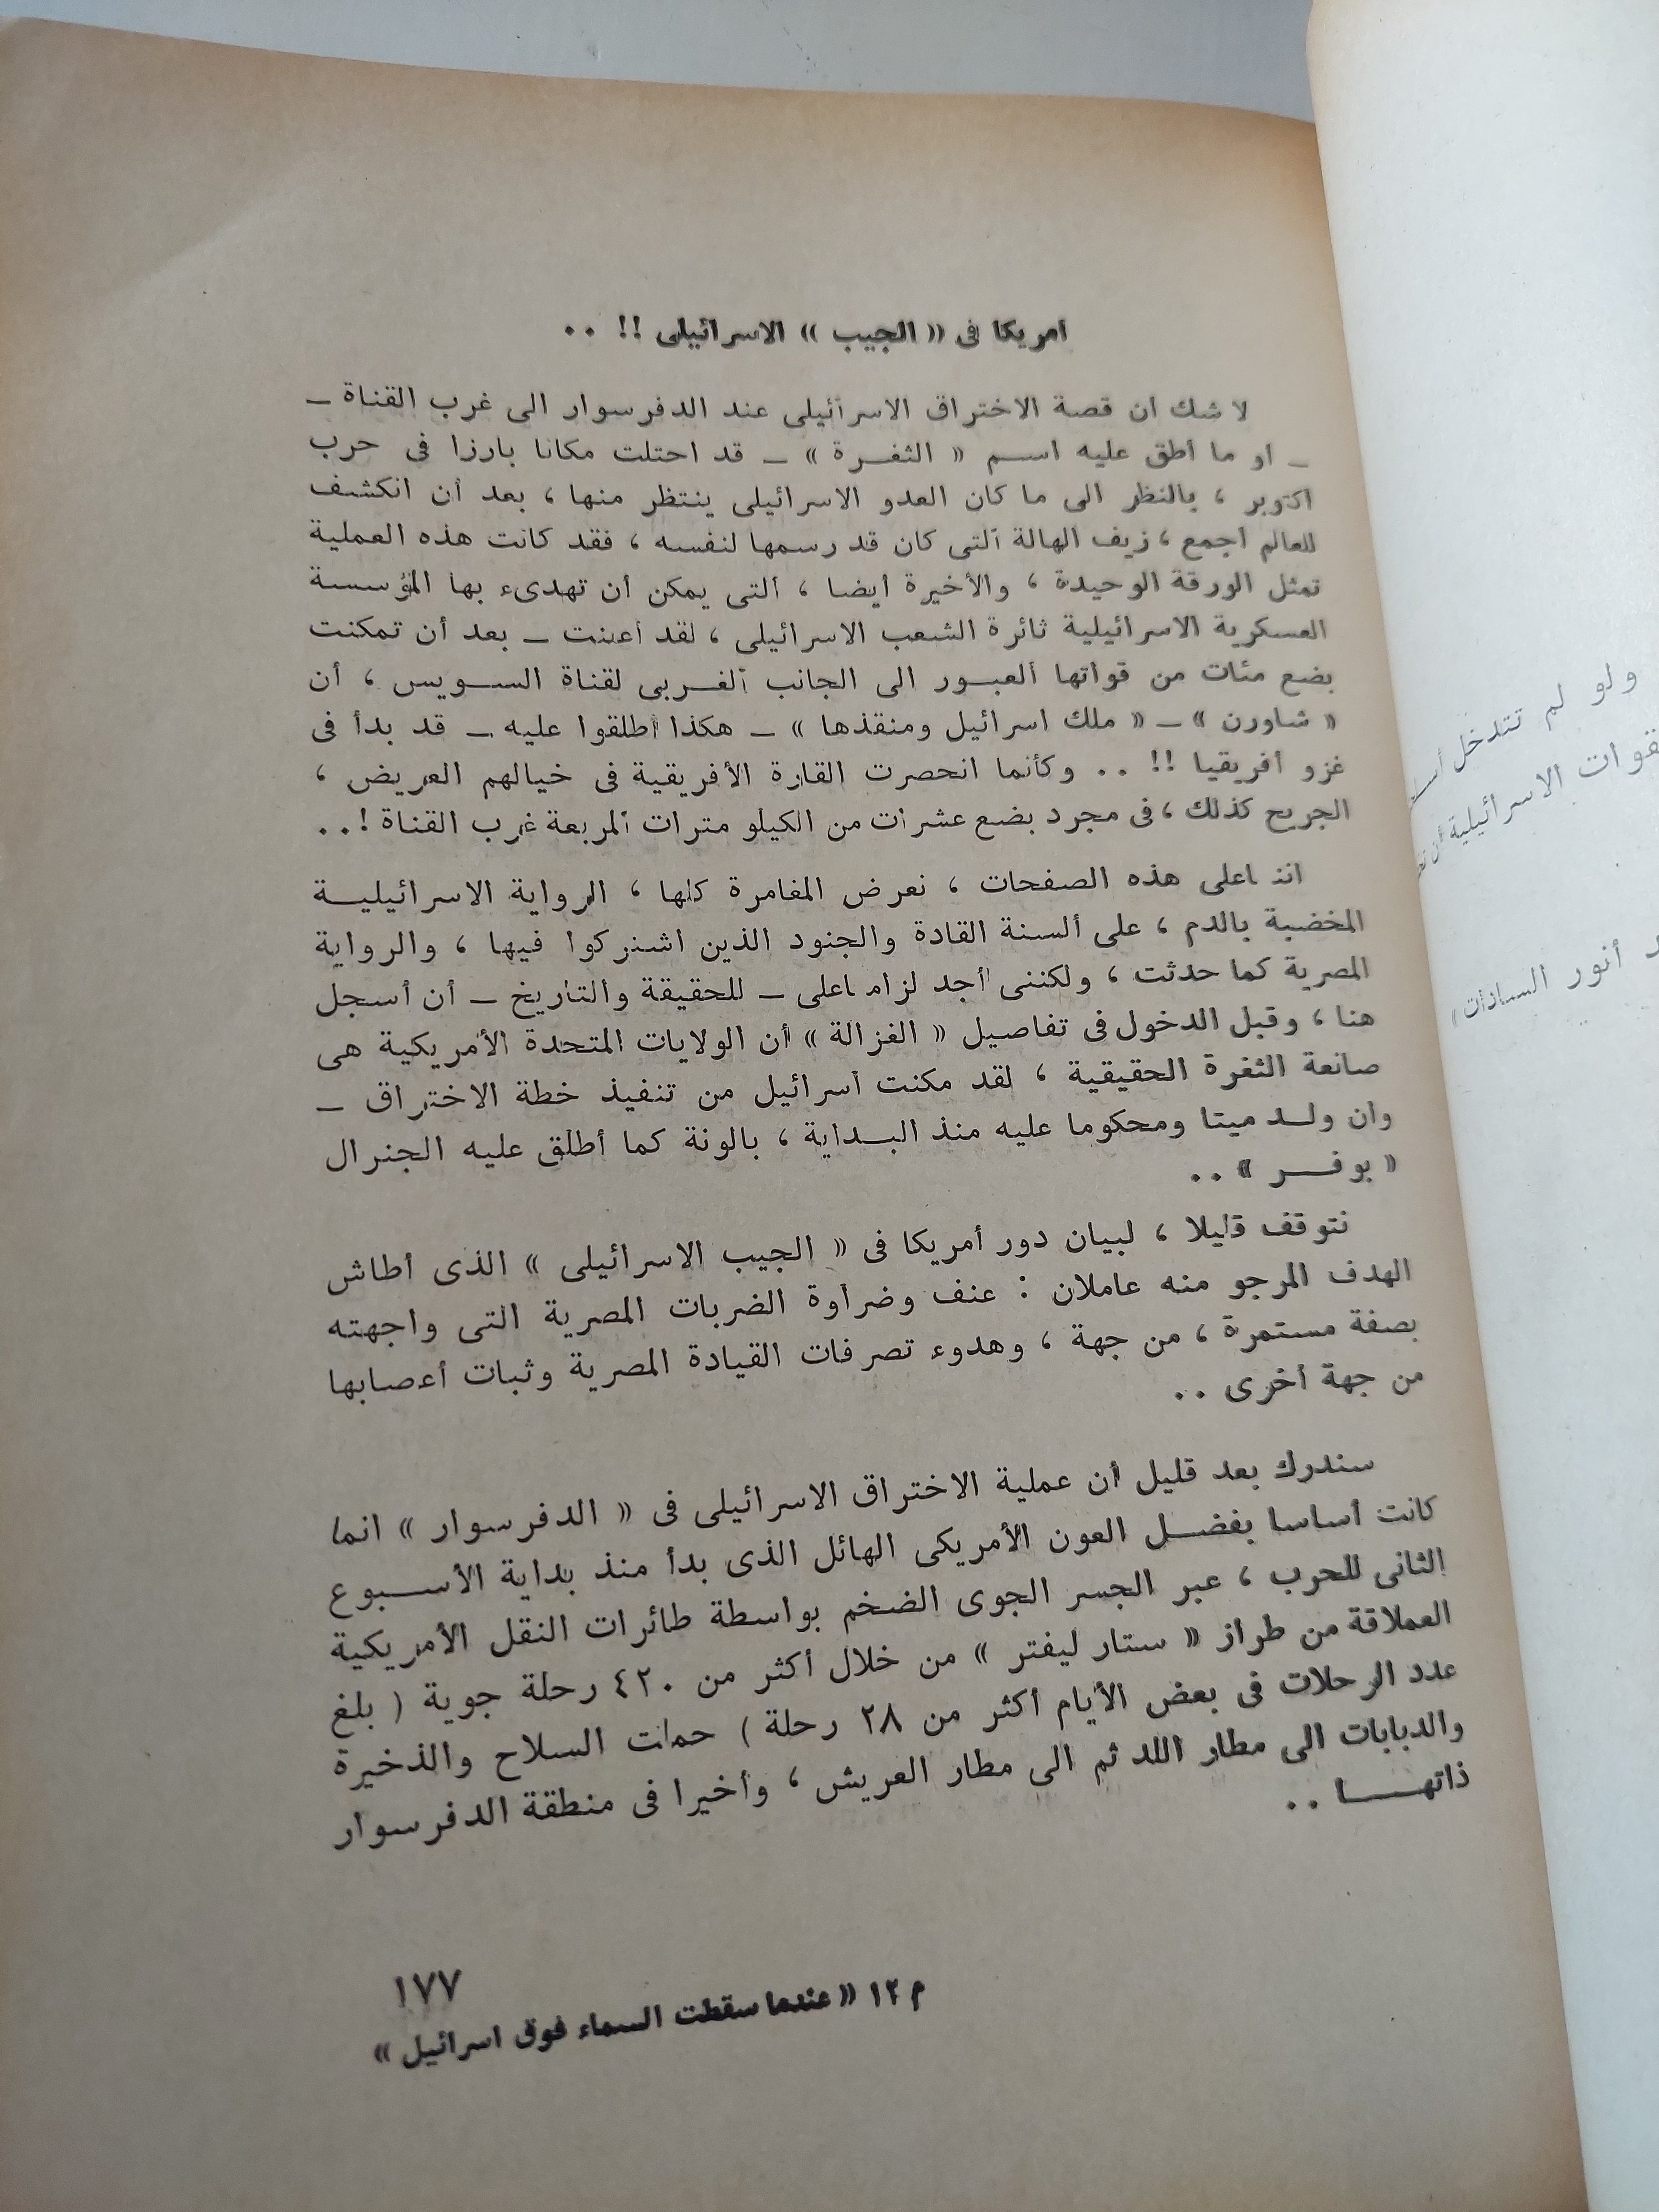 امريكا فى « الجيب » الاسرائيلى !! ..
لا شك أن قصة الاختراق الاسرائيلى عند الدفرسوار الى غرب القناة ـ
ـ او ما أطق عليه اسم « الثغرة » ـ قد احتلت مكانا بارزا فى حرب
اكتوبر ، بالنظر الى ما كان العدو الاسرائيلى ينتظر منها ، بعد أن انكشف
للعالم أجمع ، زيف الهالة التى كان قد رسمها لنفسه ، فقد كانت هذه العملية
تمثل الورقة الوحيدة ، والأخيرة أيضا ، التى يمكن أن تهدىء بها المؤسسة
العسكرية الاسرائيلية ثائرة الشعب الاسرائيلى ، لقد أعلنت ـ بعد أن تمكنت
بضع مئات من قواتها العبور الى الجانب الغربى لقناة السويس ، أن
« شاورن » ـ « ملك اسرائيل ومنقذها » ـ هكذا أطلقوا عليه ـ قد بدأ فى
غزو أفريقيا !! .. وكأنما انحصرت القارة الأفريقية فى خيالهم العريض ،
الجريح كذلك ، فى مجرد بضع عشرات من الكيلو مترات المربعة غرب القناة ! ..
اننا على هذه الصفحات ، نعرض المغامرة كلها ، الرواية الاسرائيلية
المخضبة بالدم ، على ألسنة القادة والجنود الذين اشتركوا فيها ، والرواية
المصرية كما حدثت ، ولكننى أجد لزاما على ـ للحقيقة والتاريخ ـ أن أسجل
هنا ، وقبل الدخول فى تفاصيل « الغزالة » أن الولايات المتحدة الأمريكية هى
صانعة الثغرة الحقيقية ، لقد مكنت أسرائيل من تنفيذ خطة الاختراق ـ
وان ولد ميتا ومحكوما عليه منذ البداية ، بالونة كما أطلق عليه الجنرال
« بوفر » ..
نتوقف قليلا ، لبيان دور أمريكا فى « الجيب الاسرائيلى » الذى أطاش
الهدف المرجو منه عاملان : عنف وضراوة الضربات المصرية التى واجهته
بصفة مستمرة ، من جهة ، وهدوء تصرفات القيادة المصرية وثبات أعصابها
من جهة أخرى ..
سندرك بعد قليل أن عملية الاختراق الاسرائيلى فى « الدفرسوار » انما
كانت أساسا بفضل العون الأمريكى الهائل الذى بدأ منذ بداية الأسبوع
الثانى للحرب ، عبر الجسر الجوى الضخم بواسطة طائرات النقل الأمريكية
العملاقة من طراز « ستار ليفتر » من خلال أكثر من ٤٢٠ رحلة جوية ( بلغ
عدد الرحلات فى بعض الأيام أكثر من ٢٨ رحلة ) حملت السلاح والذخيرة
والدبابات الى مطار اللد ثم الى مطار العريش ، وأخيرا فى منطقة الدفرسوار
ذاتها ..
١٧٧
م ١٢ « عندما سقطت السماء فوق اسرائيل »
ولو لم تتدخل
قوات الاسرائيلية أن
أنور السادات »